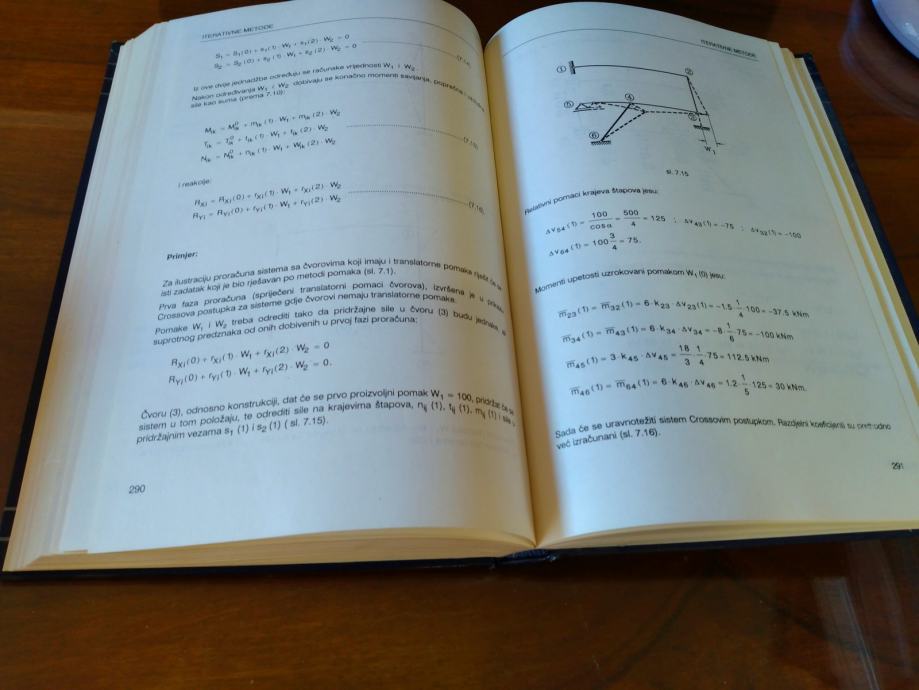 ITERATIVNE METODE
S₁ = S₁(0) + s₁(1) · W₁ + s₁(2) · W₂ = 0
S₂ = S₂(0) + s₂(1) · W₁ + s₂(2) · W₂ = 0 (7.14)
Iz ove dvije jednadžbe određuju se računske vrijednosti W₁ i W₂
Nakon određivanja W₁ i W₂ dobivaju se konačno momenti savijanja, poprečne i uzdužne
sile kao suma (prema 7.10):
Mik = M⁰ik + mik(1) · W₁ + mik(2) · W₂
Tik = T⁰ik + tik(1) · W₁ + tik(2) · W₂ (7.15)
Nik = N⁰ik + nik(1) · W₁ + Wik(2) · W₂
i reakcije:
RXi = RXi(0) + rXi(1) · W₁ + rXi(2) · W₂
RYi = RYi(0) + rYi(1) · W₁ + rYi(2) · W₂ (7.16)
Primjer:
Za ilustraciju proračuna sistema sa čvorovima koji imaju i translatorne pomake riješit će se
isti zadatak koji je bio rješavan po metodi pomaka (sl. 7.1).
Prva faza proračuna (spriječeni translatorni pomaci čvorova), izvršena je u prikazu
Crossova postupka za sisteme gdje čvorovi nemaju translatorne pomake.
Pomake W₁ i W₂ treba odrediti tako da pridržajne sile u čvoru (3) budu jednake i
suprotnog predznaka od onih dobivenih u prvoj fazi proračuna:
RXi(0) + rXi(1) · W₁ + rXi(2) · W₂ = 0
RYi(0) + rYi(1) · W₁ + rYi(2) · W₂ = 0.
Čvoru (3), odnosno konstrukciji, dat će se prvo proizvoljni pomak W₁ = 100, pridržat će se
sistem u tom položaju, te odrediti sile na krajevima štapova, nij (1), tij (1), mij (1) i sile u
pridržajnim vezama s₁ (1) i s₂ (1) ( sl. 7.15).
290
ITERATIVNE METODE
1
2
5
4
3
6
W₁
sl. 7.15
Relativni pomaci krajeva štapova jesu:
Δv₅₄(1) = 100/cosα = 500/4 = 125 ; Δv₄₃(1) = -75 ; Δv₃₂(1) = -100
Δv₆₄(1) = 100 3/4 = 75.
Momenti upetosti uzrokovani pomakom W₁ (0) jesu:
m̅₂₃(1) = m̅₃₂(1) = 6 · k₂₃ · Δv₂₃(1) = -1.5 · 1/4 · 100 = -37.5 kNm
m̅₃₄(1) = m̅₄₃(1) = 6 · k₃₄ · Δv₃₄ = -8 · 1/6 · 75 = -100 kNm
m̅₄₅(1) = 3 · k₄₅ · Δv₄₅ = 18/3 · 1/4 · 75 = 112.5 kNm
m̅₄₆(1) = m̅₆₄(1) = 6 · k₄₆ · Δv₄₆ = 1.2 · 1/5 · 125 = 30 kNm.
Sada će se uravnotežiti sistem Crossovim postupkom. Razdjelni koeficijenti su prethodno
već izračunani (sl. 7.16).
291